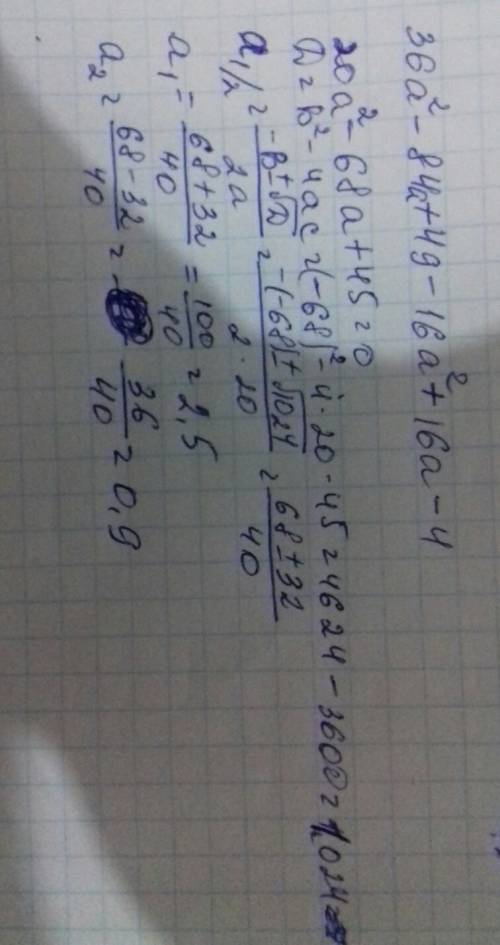 36a² - 84a + 49 - 16a² + 16a - 4
20a² - 68a + 45 = 0
D = в² - 4ac = (-68)² - 4·20·45 = 4624 - 3600 = 1024
a₁/₂ = (-в ± √D)/(2a) = (-(-68) ± √1024)/(2·20) = (68 ± 32)/40
a₁ = (68 + 32)/40 = 100/40 = 2,5
a₂ = (68 - 32)/40 = 36/40 = 0,9